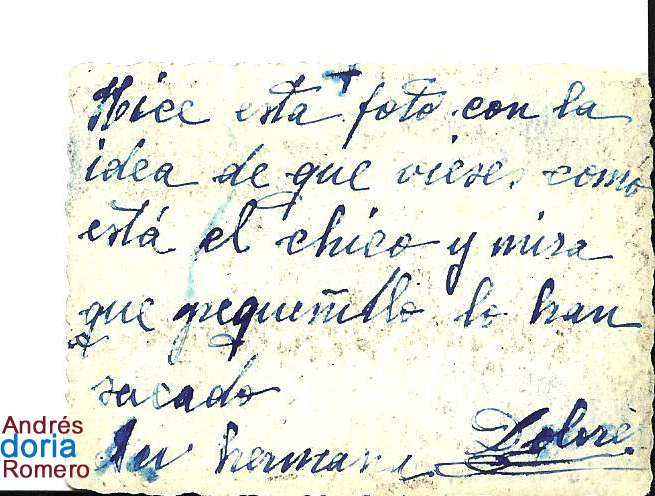 Hice esta foto con la
idea de que vieses como
está el chico y mira
que pequeñillo lo han
sacado
Tu hermana
Andrés
doria
Romero